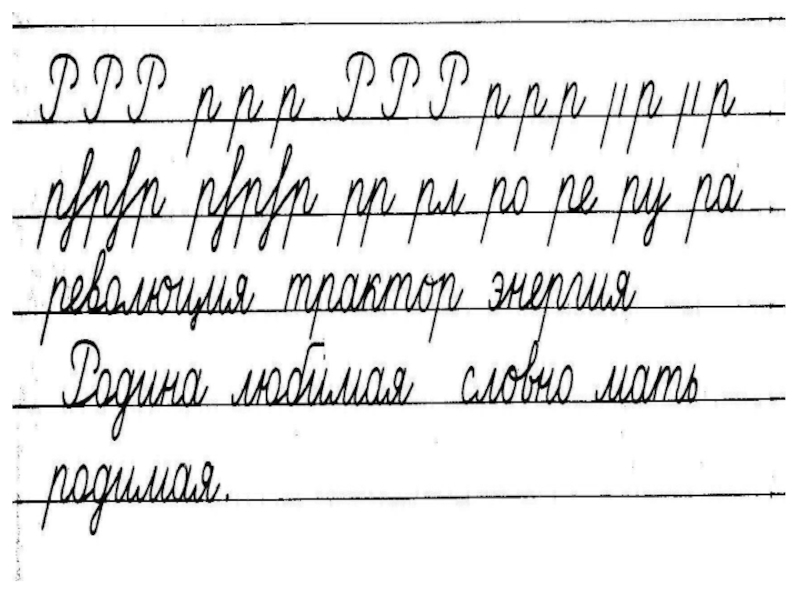 Р Р Р р р р Р Р Р р р р р р
рfрfр рfрfр рр рл ро ре ру ра
революция трактор энергия
Родина любимая словно мать
родимая.